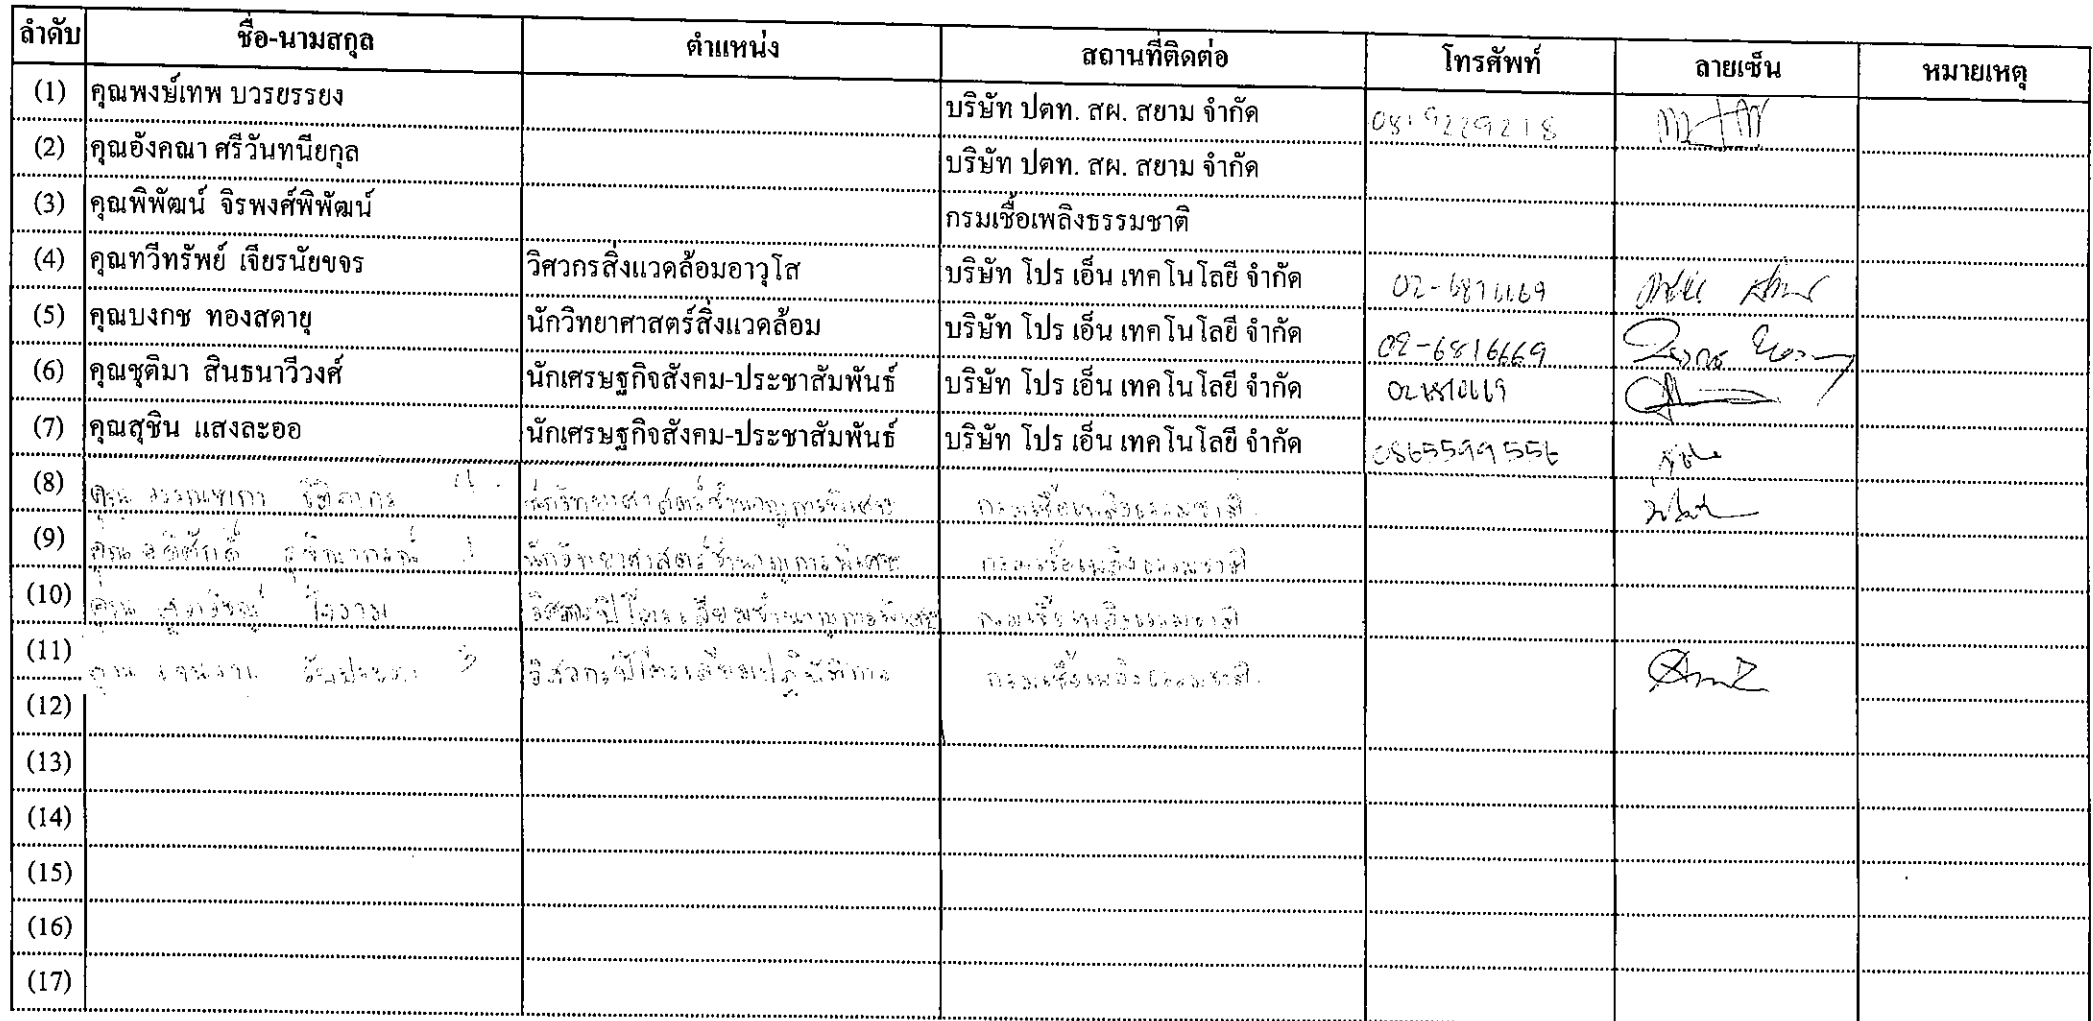 ลำดับ ชื่อ-นามสกุล ตำแหน่ง สถานที่ติดต่อ โทรศัพท์ ลายเซ็น หมายเหตุ
(1) คุณพงษ์เทพ บวรยรรยง บริษัท ปตท. สผ. สยาม จำกัด 0819229218
(2) คุณอังคณา ศรีวันทนียกุล บริษัท ปตท. สผ. สยาม จำกัด
(3) คุณพิพัฒน์ จิรพงศ์พิพัฒน์ กรมเชื้อเพลิงธรรมชาติ
(4) คุณทวีทรัพย์ เจียรนัยขจร วิศวกรสิ่งแวดล้อมอาวุโส บริษัท โปร เอ็น เทคโนโลยี จำกัด
(5) คุณบงกช ทองสดายุ นักวิทยาศาสตร์สิ่งแวดล้อม บริษัท โปร เอ็น เทคโนโลยี จำกัด 02-6816669
(6) คุณชุติมา สินธนาวีวงศ์ นักเศรษฐกิจสังคม-ประชาสัมพันธ์ บริษัท โปร เอ็น เทคโนโลยี จำกัด
(7) คุณสุชิน แสงละออ นักเศรษฐกิจสังคม-ประชาสัมพันธ์ บริษัท โปร เอ็น เทคโนโลยี จำกัด 0865599556
(8) คุณ นักวิทยาศาสตร์ชำนาญการพิเศษ กรมเชื้อเพลิงธรรมชาติ
(9) คุณ นักวิทยาศาสตร์ชำนาญการพิเศษ กรมเชื้อเพลิงธรรมชาติ
(10) คุณ วิศวกรปิโตรเลียมชำนาญการพิเศษ กรมเชื้อเพลิงธรรมชาติ
(11) คุณ วิศวกรปิโตรเลียมปฏิบัติการ กรมเชื้อเพลิงธรรมชาติ
(12)
(13)
(14)
(15)
(16)
(17)